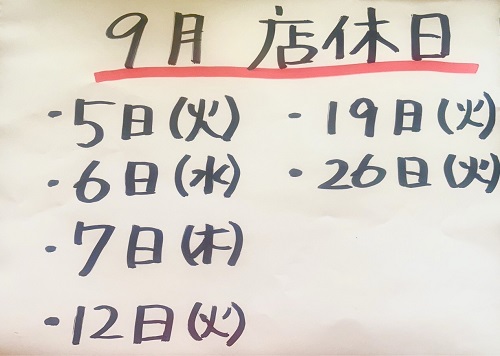 9月 店休日
・5日(火)
・6日(水)
・7日(木)
・12日(火)
・19日(火)
・26日(火)